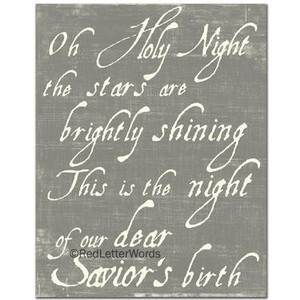 Oh Holy Night
the stars are
brightly shining
This is the night
of our dear
©RedLetterWords
Savior's birth